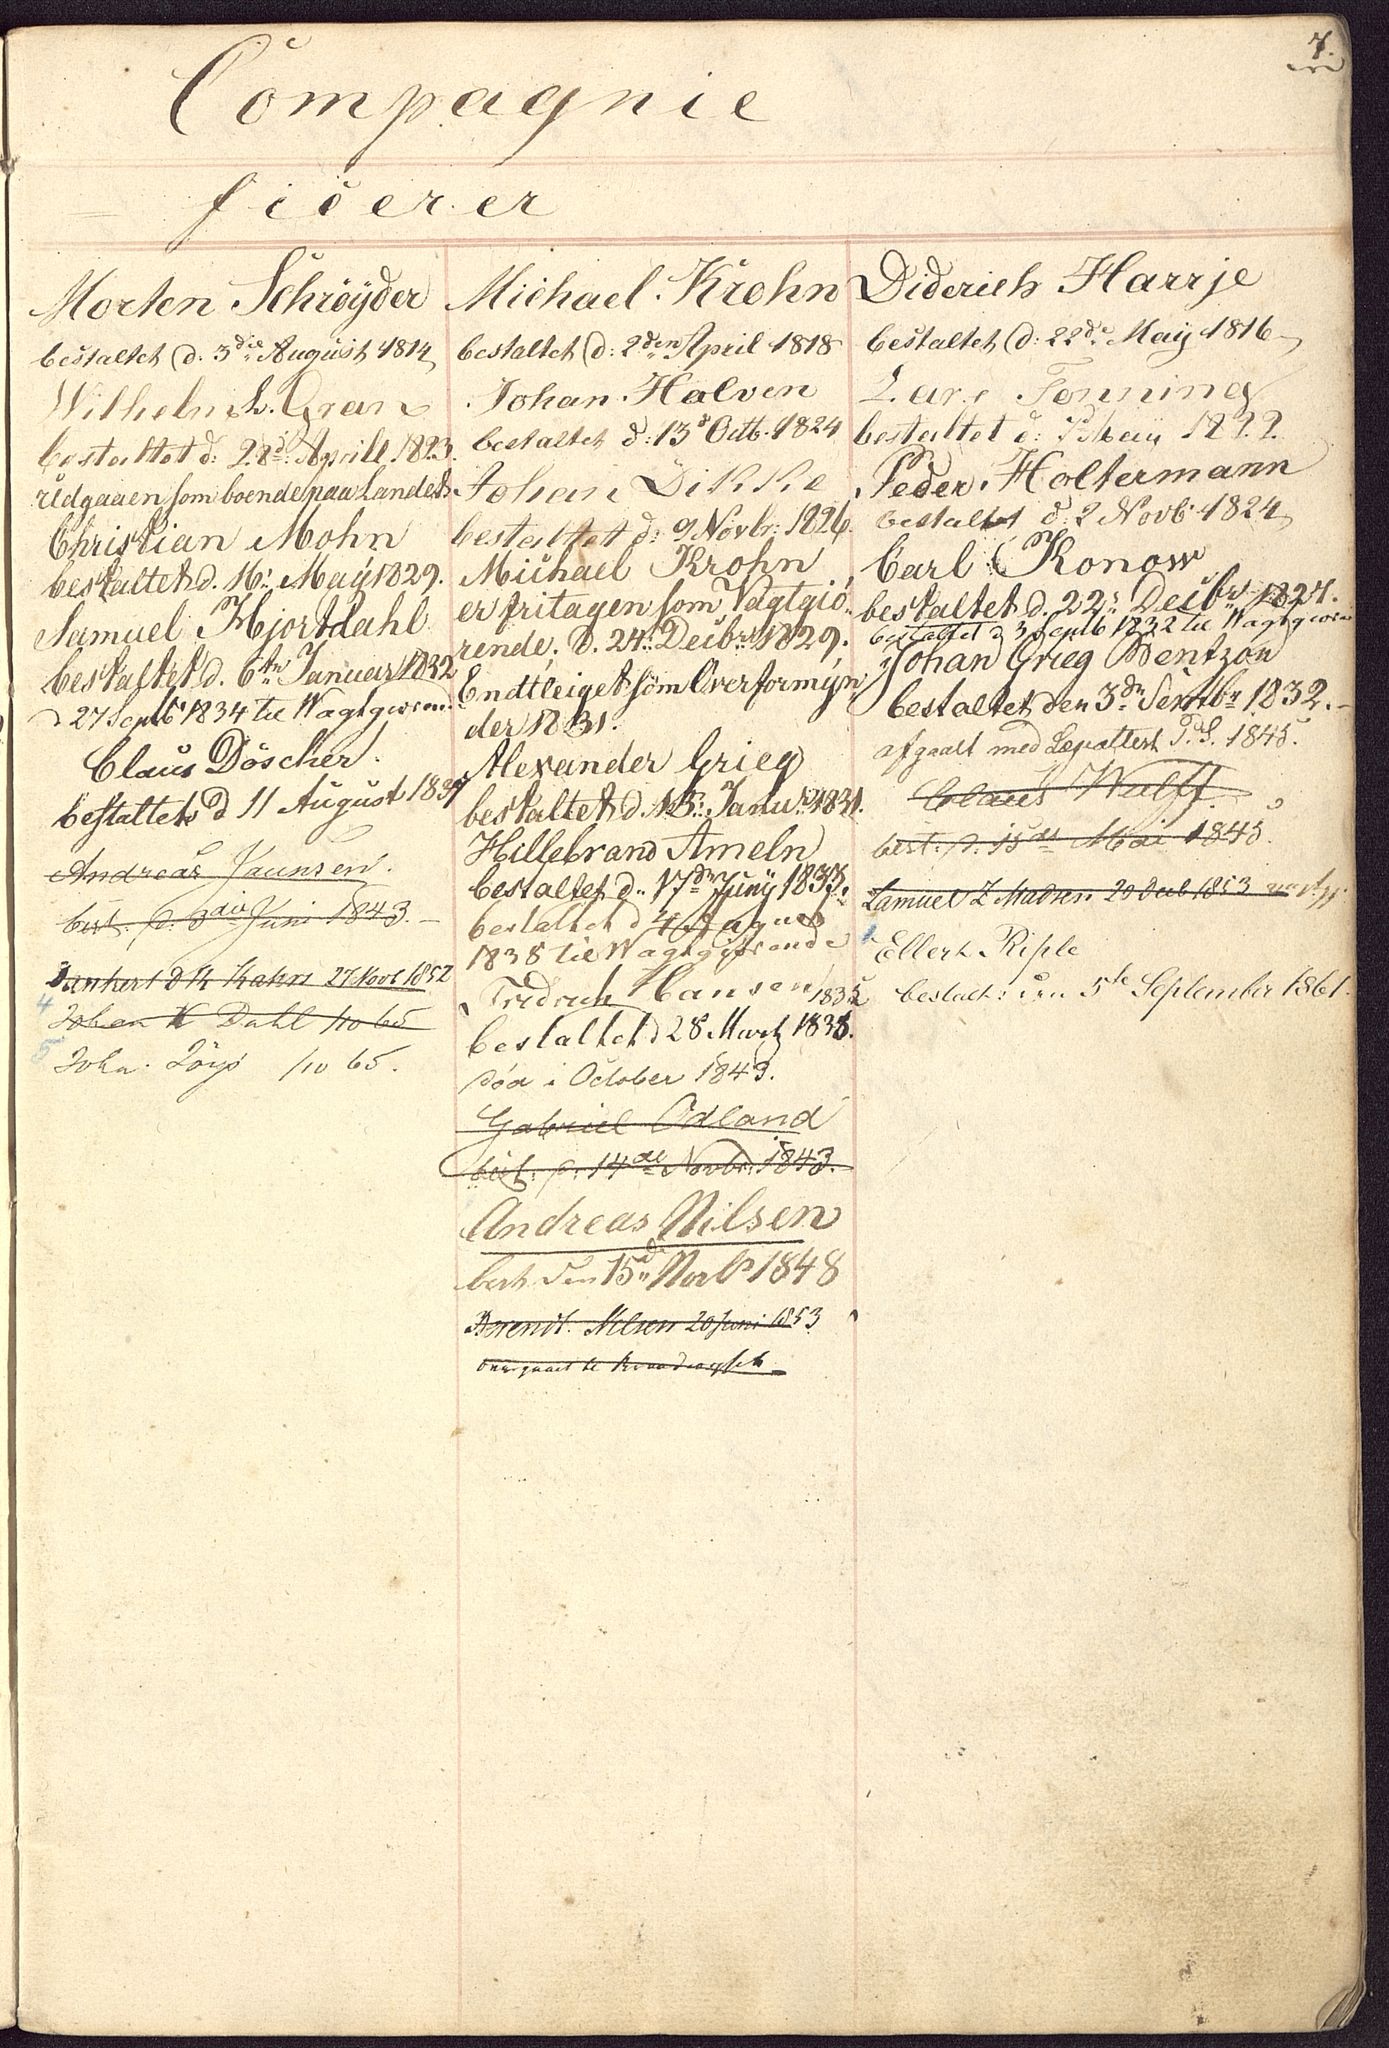 7.
Compagnie
ficerer
Morten Schrøyder
bestaltet d: 3die August 1814
Wilhelm L. Gran
bestaltet d: 28d: Aprill 1823.
udgaaen som boende paa Landet
Christian Mohn
bestaltet d. 16: May 1829.
Samuel Hjortdahl
bestaltet d. 6te Januar 1832
d 27 Septb 1834 til Wagtgiørend.
Claus Döscher.
bestaltet d 11 August 1834
Andreas Jaunsen.
best. d. 3die Juni 1843.
Kahrs 27 Novb 1852
4
Johan K Dahl 1/10 65
5
Joha. 1/10 65.
Michael Krohn
bestaltet d: 2den April 1818
Johan Halven
bestaltet d: 13d Octb. 1824
Johan Dikke
bestaltet d: 9 Novbr: 1826.
Michael Krohn
er fritagen som Vagtgiö..
rende. d. 24: Decbr: 1829.
Endtleiget som Overformyn
der 1831.
Alexander Grieg
bestaltet d. 13: Janu: 1831.
Hillebrand Ameln
bestaltet d.. 17de Juny 1833.
bestaltet d 4 August
1838 til Wagtgiörende
Fredrich Hansen 1835
bestaltet d 28 Martz 1838.
död i October 1843.
Gabriel Ödland
best. d. 14de Novbr: 1843.
Andreas Nilsen
best. den 15d Novbr 1848
Berendt. Nilsen 20 Juni 1853
overgaaet til
Diderich Harrje
bestaltet d: 22de May 1816
Lars Fonning
bestaltet d: Maij 1822.
Peder Holtermann
bestaltet d: 2 Novb 1824
Carl Konow
bestaltet d. 22: Decbr 1827.
bestaltet d 3 Septb 1832 til Wagtgiören
Johan Grieg Bentzon
bestaltet den 3de Septbr 1832.
afgaaet med Lepattest P.S. 1845.
Claus Wulff.
best: d. 15de Mai 1845.
Samuel Z Madsen 20 Decb 1853
Ellert Riple
bestalt: den 5te September 1861.